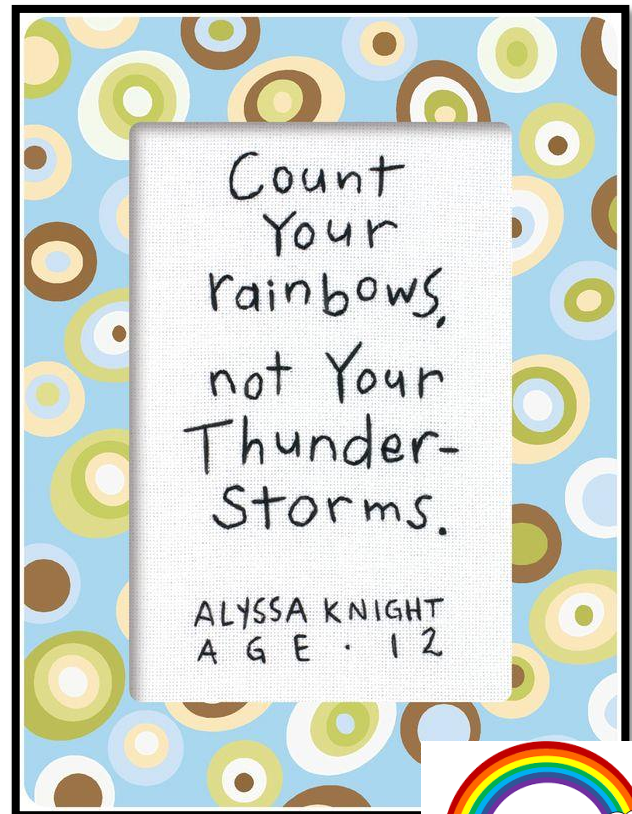 Count
Your
rainbows,
not Your
Thunder-
Storms.
ALYSSA KNIGHT
AGE · 12